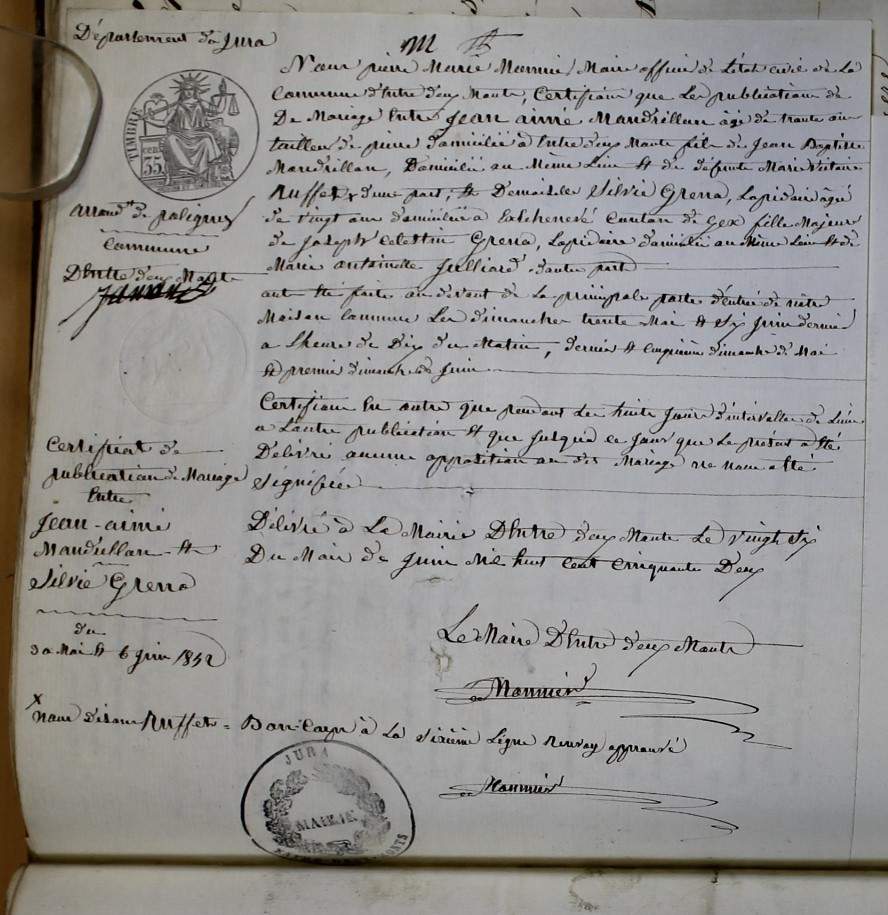 Département du Jura
TIMBRE
35 cen
Arrondt de poligny
Commune
D'Entre deux Monts
Nous pierre Marie Monnier Maire officier de L'état civil de La
Commune d'Entre deux Monts, Certifions que Les publications de
De Mariage Entre Jean aimé Mandrillon âgé de trente ans
tailleur de pierre domicilié a Entre deux Monts fils de Jean Baptiste
Mandrillon, Domicilié au Même Lieu et de défunte Marie Victoire
Ruffet x d'une part; et Demoiselle Silvie Grena, Lapidaire âgé
de vingt ans domicilié a Canton de Gex fille Majeure
de Joseph Celestin Grena, Lapidaire domicilié au Même Lieu et de
Marie antoinette Julliard d'autre part
ont été faite au devant de La principale porte d'entrée de nôtre
Maison Commune Les dimanches trente Mai et Six Juin dernier
a L'heure de Dix du Matin, dernier et cinquième dimanche de Mai
et premier dimanche de Juin
Certifions En outre que pendant Les huits Jours d'intervalles de L'une
a L'autre publication et que Jusqu'à ce Jour que Le présent a été
Délivré aucune opposition au dit Mariage ne nous a été
Signifiée
Certificat de
publication de Mariage
Entre
Jean-aimé
Mandrillon et
Silvie Grena
du
30 Mai et 6 Juin 1852
Délivré à La Mairie D'Entre deux Monts Le vingt Six
Du Mois de Juin Mil huit cent Cinquante Deux
Le Maire D'Entre deux Monts
Monnier
x Nous disons Ruffet = Bon-Corps à La Sixième Ligne Renvoy approuvé
Monnier
JURA
MAIRIE